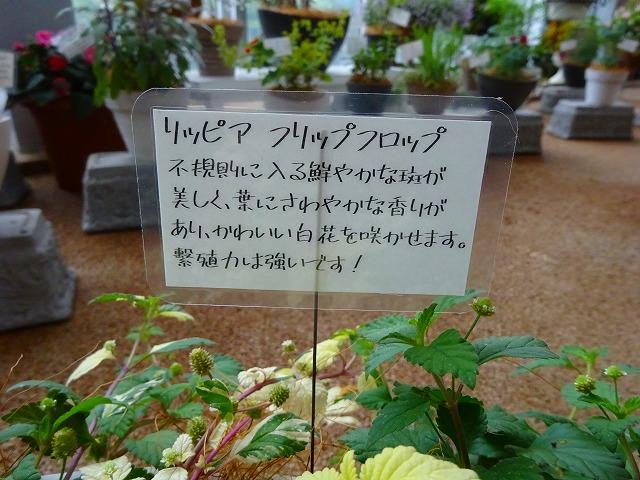 リッピア フリップフロップ
不規則に入る鮮やかな斑が
美しく、葉にさわやかな香りが
あり、かわいい白花を咲かせます。
繫殖力は強いです!